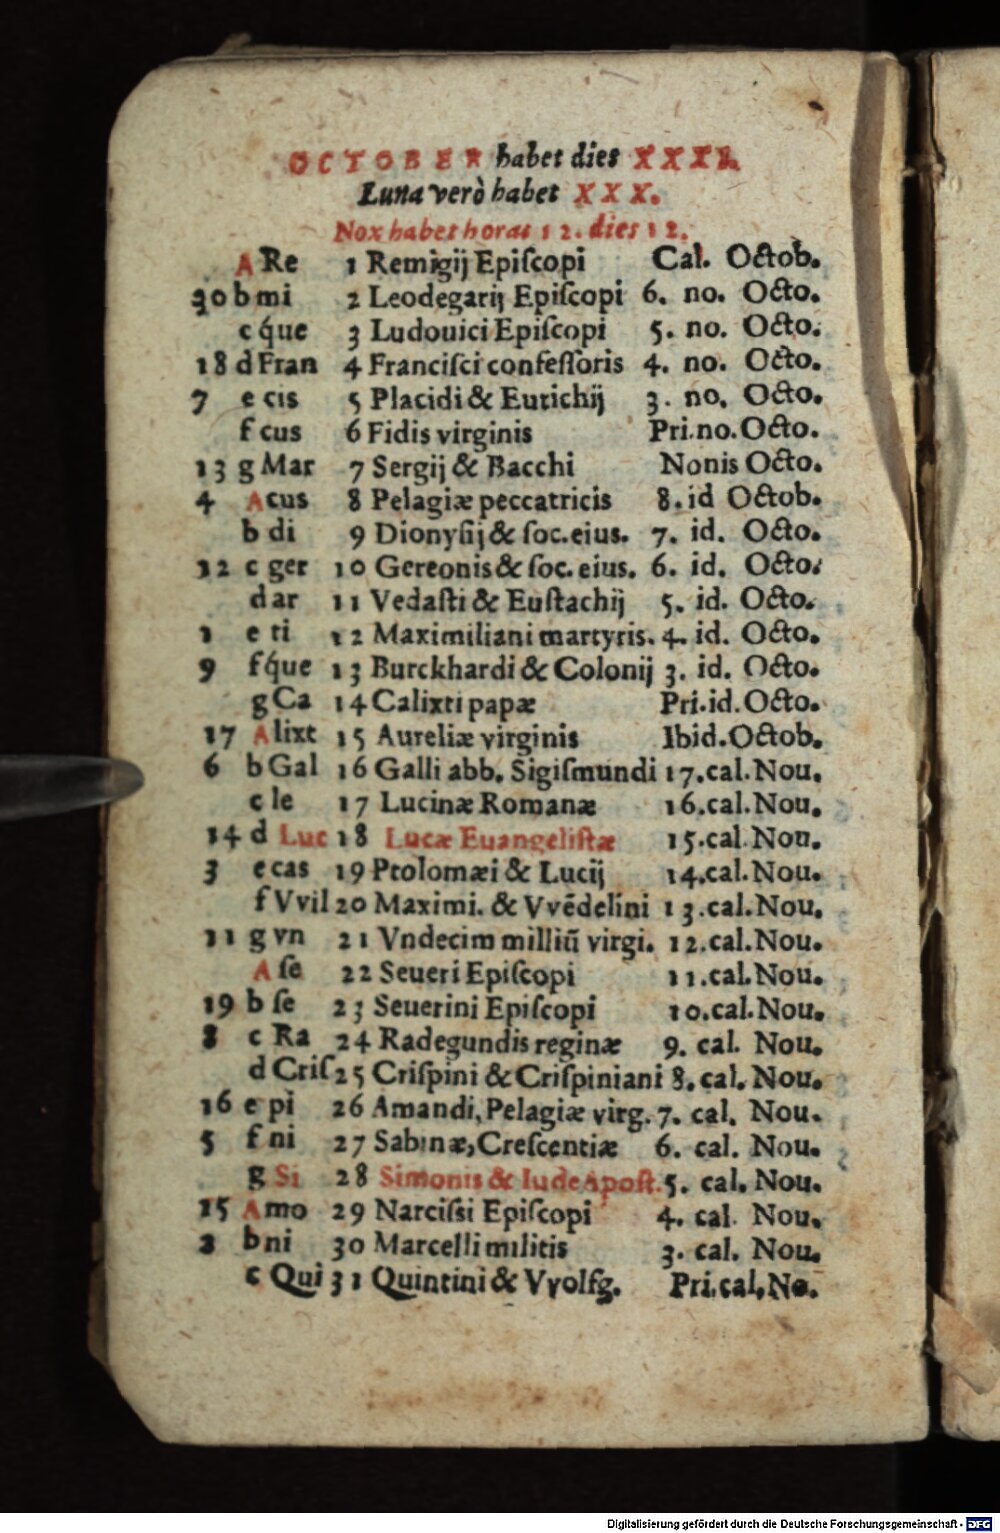 OCTOBER habet dies XXXI.
Luna verò habet XXX.
Nox habet horas 12. dies 12.
A Re 1 Remigij Epiſcopi Cal. Octob.
20 b mi 2 Leodegarij Epiſcopi 6. no. Octo.
c q́ue 3 Ludouici Epiſcopi 5. no. Octo.
18 d Fran 4 Franciſci confeſſoris 4. no. Octo.
7 e cis 5 Placidi & Eutichij 3. no. Octo.
f cus 6 Fidis virginis Pri.no.Octo.
13 g Mar 7 Sergij & Bacchi Nonis Octo.
4 A cus 8 Pelagiæ peccatricis 8.id Octob.
b di 9 Dionyſij & ſoc.eius. 7. id. Octo.
12 c ger 10 Gereonis & ſoc.eius. 6. id. Octo.
d ar 11 Vedaſti & Euſtachij 5. id. Octo.
1 e ti 12 Maximiliani martyris. 4. id. Octo.
9 f q́ue 13 Burckhardi & Colonij 3. id. Octo.
g Ca 14 Calixti papæ Pri.id.Octo.
17 A lixt 15 Aureliæ virginis Ibid.Octob.
6 b Gal 16 Galli abb. Sigiſmundi 17.cal.Nou.
c le 17 Lucinæ Romanæ 16.cal.Nou.
14 d Luc 18 Lucæ Euangeliſtæ 15.cal.Nou.
3 e cas 19 Ptolomæi & Lucij 14.cal.Nou.
f Vvil 20 Maximi. & Vvẽdelini 13.cal.Nou.
11 g vn 21 Vndecim milliũ virgi. 12.cal.Nou.
A ſe 22 Seueri Epiſcopi 11.cal.Nou.
19 b ſe 23 Seuerini Epiſcopi 10.cal.Nou.
8 c Ra 24 Radegundis reginæ 9. cal. Nou.
d Criſ 25 Criſpini & Criſpiniani 8. cal. Nou.
16 e pi 26 Amandi, Pelagiæ virg. 7. cal. Nou.
5 f ni 27 Sabinæ, Creſcentiæ 6. cal. Nou.
g Si 28 Simonis & Iude Apoſt. 5. cal. Nou.
15 A mo 29 Narciſsi Epiſcopi 4. cal. Nou.
2 b ni 30 Marcelli militis 3. cal. Nou.
c Qui 31 Quintini & Vvolfg. Pri.cal.No.
Digitalisierung gefördert durch die Deutsche Forschungsgemeinschaft - DFG